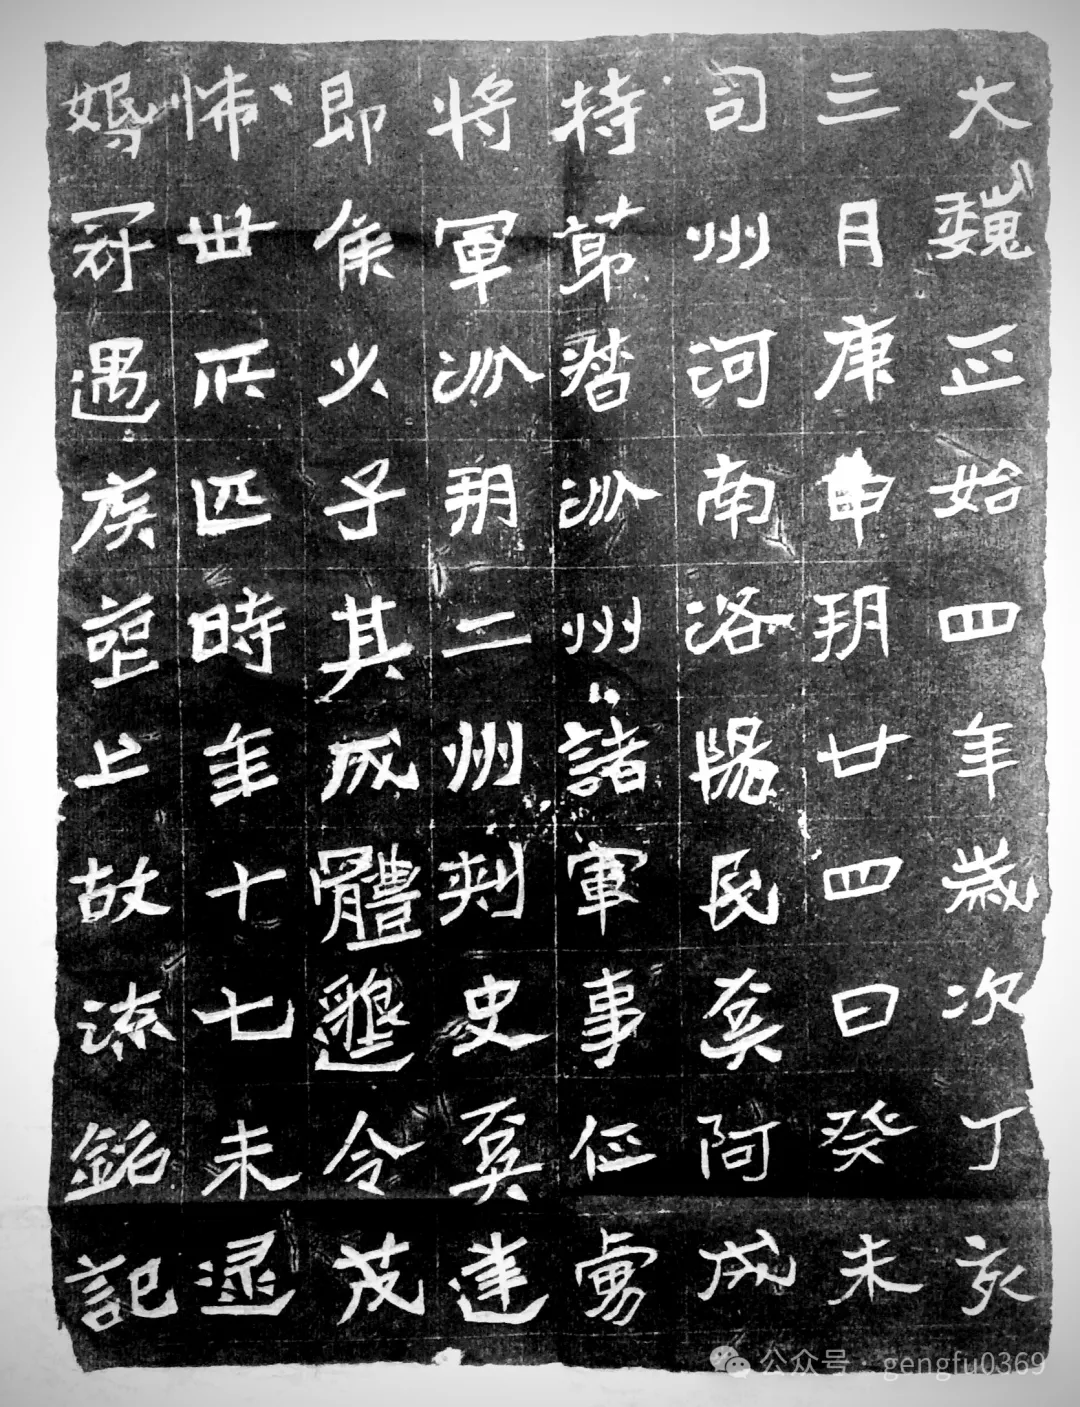 大魏正始四年歲次丁亥
三月庚申朔廿四日癸未
司州河南洛陽民奚阿成
持節督汾州諸軍事征虜
將軍汾朔二州刺史奚達
即侯少子其成體邈令茂
怖世所匹時年十七未逮
婚冠遇疾上故流銘記
公众号·gengfu0369